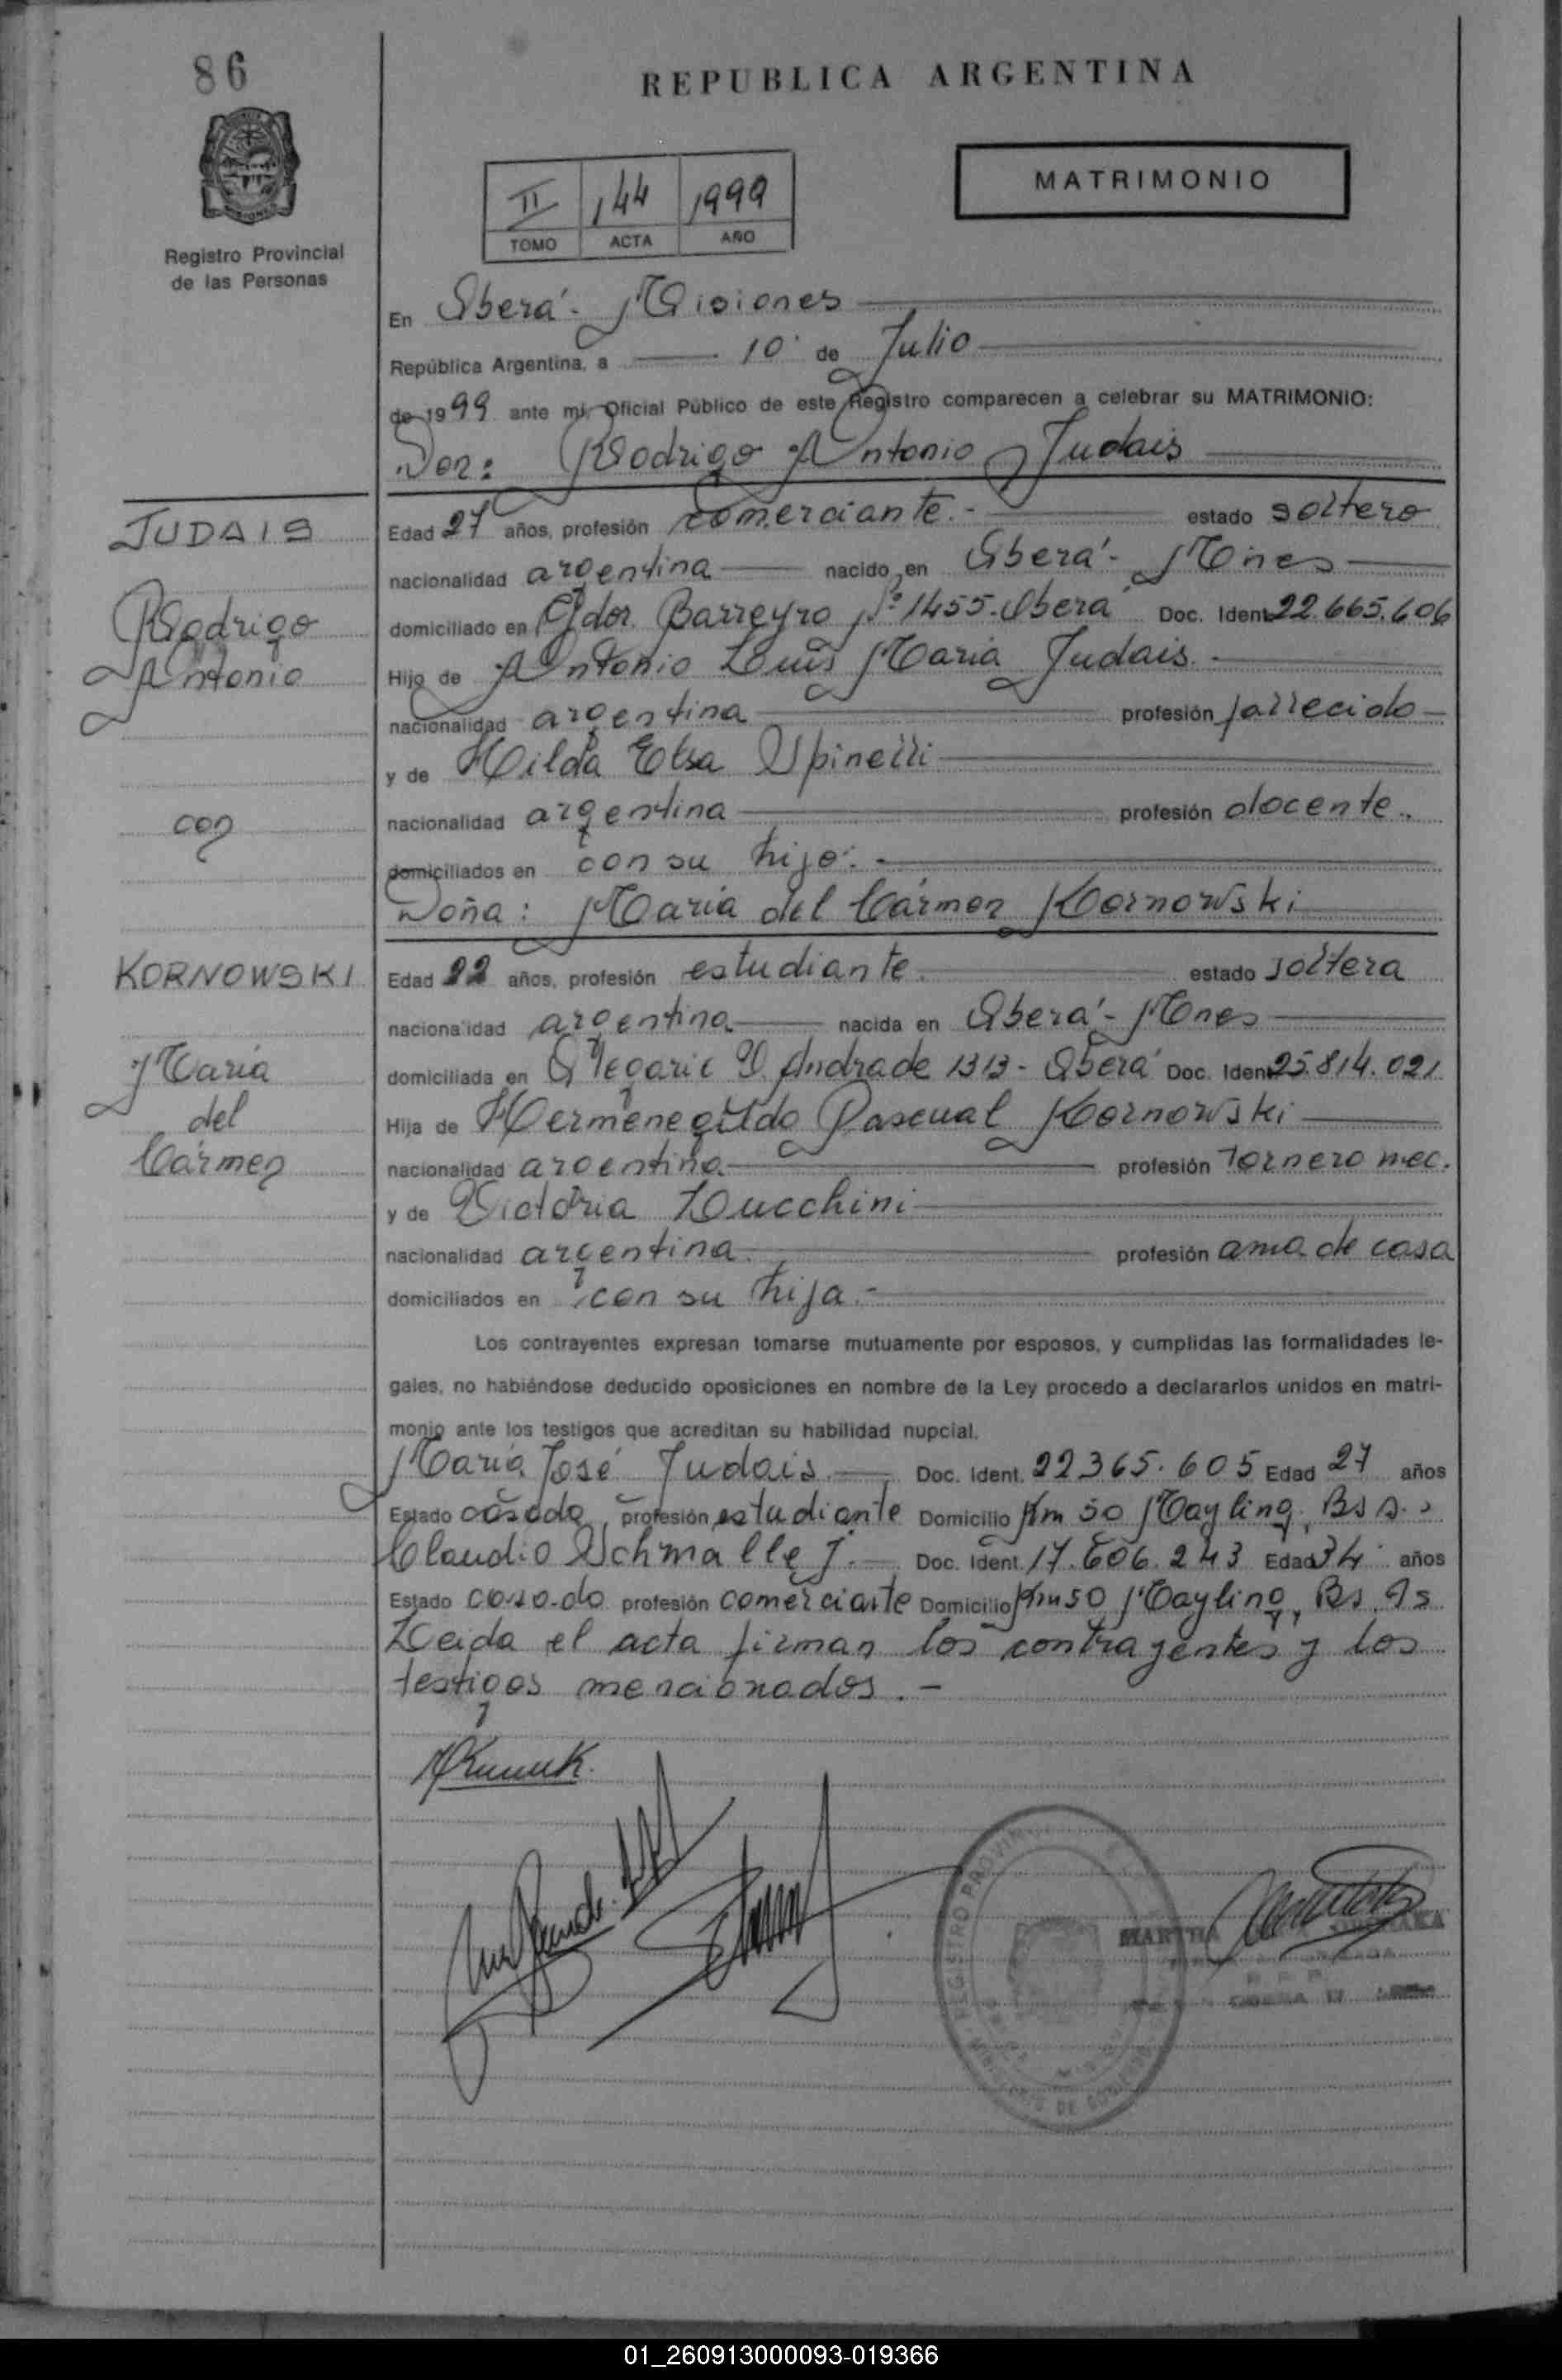 86
REPUBLICA ARGENTINA
MATRIMONIO
II 144 1999
TOMO ACTA AÑO
Registro Provincial
de las Personas
En Oberá - Misiones
República Argentina, a 10 de Julio
de 1999 ante mi, Oficial Público de este Registro comparecen a celebrar su MATRIMONIO:
Don: Rodrigo Antonio Judais
JUDAIS
Rodrigo
Antonio
con
KORNOWSKI
María
del
Cármen
Edad 27 años, profesión comerciante.- estado soltero
nacionalidad argentina nacido en Oberá - Mnes
domiciliado en Gdor. Barreyro Nº 1455-Oberá Doc. Ident. 22.665.606
Hijo de Antonio Luis María Judais.-
nacionalidad argentina profesión fallecido
y de Hilda Elsa Spinelli
nacionalidad argentina profesión docente.
domiciliados en con su hijo.-
Doña: María del Cármen Kornowski
Edad 22 años, profesión estudiante. estado soltera
nacionalidad argentina nacida en Oberá - Mnes
domiciliada en Olegario V. Andrade 1313 - Oberá Doc. Ident. 25.814.021
Hija de Hermenegildo Pascual Kornowski
nacionalidad argentina profesión Tornero mec.
y de Victoria Lucchini
nacionalidad argentina. profesión ama de casa
domiciliados en con su hija.-
Los contrayentes expresan tomarse mutuamente por esposos, y cumplidas las formalidades le-
gales, no habiéndose deducido oposiciones en nombre de la Ley procedo a declararlos unidos en matri-
monio ante los testigos que acreditan su habilidad nupcial.
María José Judais. Doc. Ident. 22365.605 Edad 27 años
Estado casada, profesión estudiante Domicilio Km 50 Mayling, Bs A.
Claudio Schmalle J. Doc. Ident. 17.606.243 Edad 34 años
Estado casado profesión comerciante Domicilio Km 50 Mayling, Bs. As
Leida el acta firman los contrayentes y los
testigos mencionados.-
REGISTRO PROVIN
MARTHA
01_260913000093-019366